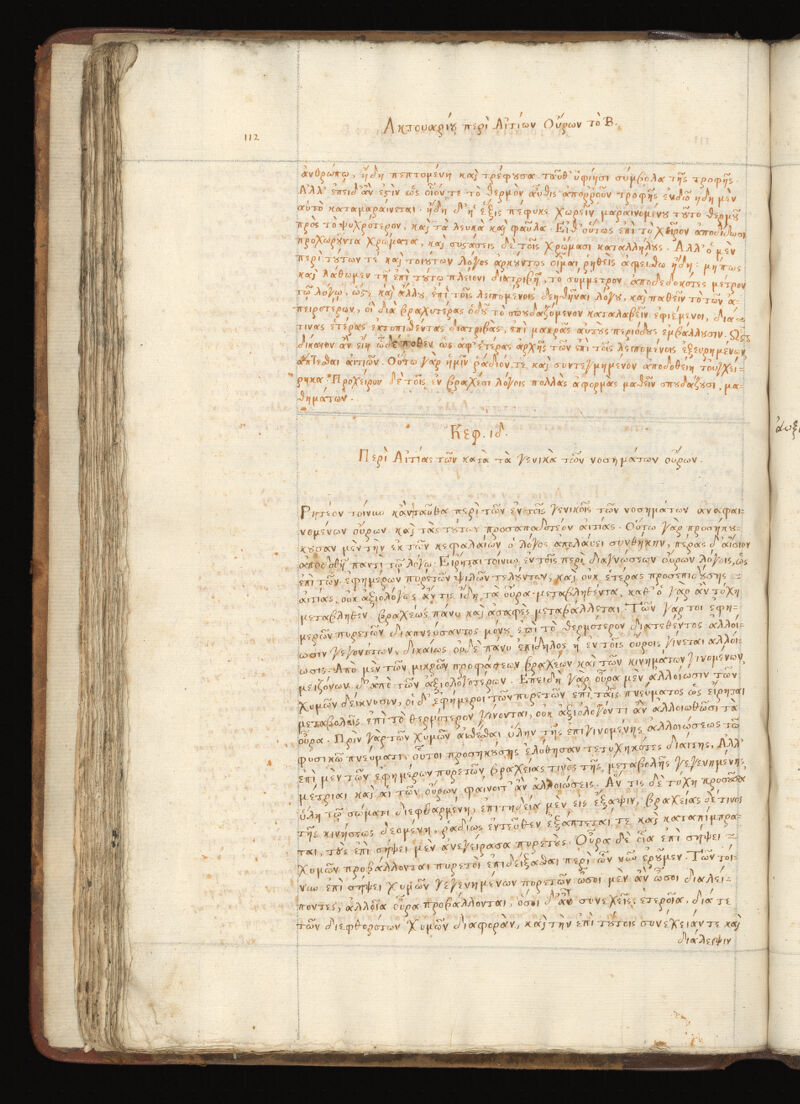 112
Ακτουαρίου περὶ Αἰτίων Οὔρων τὸ Β.
ἀνθρώπῳ, ἤδη πεπτομένη καὶ τρέφουσα· ταῦθ' ὑφίησι σύμβολα τῆς τροφῆς.
Ἀλλ' ἐπειδ' ἂν ἐξὶν ὡς οἷόν τε τὸ θερμὸν αὖθις ἀποῤῥοῦν τροφῆς ἐνδῷ ἤδη μὲν
αὐτὸ καταμαραίνεται· ἤδη δ' ἡ ἕξις πέφυκε χωρεῖν μαραινομένου τούτου θερμοῦ
πρὸς τὸ ψυχρότερον, καὶ τὰ λευκὰ καὶ φαῦλα. Εἶθ' οὕτως ἐπὶ τὸ χεῖρον ἀποδίδωσι
προχωροῦντα χρώματα, καὶ συστάσεις δὲ τοῖς χρώμασι καταλλήλους. Ἀλλ' ὁ μὲν
περὶ τούτων τε καὶ τοιούτων λόγος ἀρκούντως οἶμαι ῥηθεὶς ἀφείσθω ἤδη· μήπως
καὶ λάθωμεν τῇ ἐπὶ τούτῳ πλείονι διατριβῇ, τὸ σύμμετρον ἀποδεδοκότες μέτρον
τῷ λόγῳ, ὥστε καὶ ἄλλου, ἐπὶ τοῖς λειπομένοις δεηθῆναι λόγου, καὶ παθεῖν τὸ τῶν ἀ-
πειροτέρων, οἳ διὰ βραχυτέρας ὁδοῦ τὸ σπουδαζόμενον καταλαβεῖν ἐφιέμενοι, διά
τινας ἑτέρας ἐκτοπιθέντας διατριβὰς, ἐπὶ μακρὰς αὑτοὺς περιόδους ἐμβάλλουσιν. Ὥστε
δίκαιον ἂν εἴη ὧδέ ποθεν ὡς ἀφ' ἑτέρας ἀρχῆς τῶν ἐπὶ τοῖς λειπομένοις ἐξευρημένων
ἅπτεσθαι αἰτιῶν. Οὕτω γὰρ ἡμῖν ῥάδιόν τε καὶ συντετμημένον ἀποδοθείη τοὐγχεί-
ρημα. Πρόχειρον δὲ τοῖς ἐν βραχέσι λόγοις πολλὰς ἀφορμὰς μαθεῖν σπουδάζουσι, μα-
θημάτων.
Κεφ. ιδ.
Περὶ Αἰτίας τῶν κατὰ τὰ γενικὰ τῶν νοσημάτων οὔρων.
Ῥητέον τοίνυν κἀνταῦθα περὶ τῶν ἐν τοῖς γενικοῖς τῶν νοσημάτων ἀναφαι-
νομένων οὔρων, καὶ τὰς τούτων προσαποδοτέον αἰτίας. Οὕτω γὰρ προσήκου-
κουσαν μὲν τὴν ἐκ τῶν κεφαλαίων ὁ λόγος ἀπολαύει συνθήκην, πέρας δ' αἴσιον
ἀποδοθῇ παντὶ τῷ λόγῳ. Εἴρηται τοίνυν ἐν τοῖς περὶ διαγνώσεων οὔρων λόγοις, ὡς
ἐπὶ τῶν ἐφημέρων πυρετῶν ψιλῶν τελούντων, καὶ οὐκ ἑτέρας προσεπιούσης
αἰτίας, οὐκ ἀξιολόγως ἄν τις ἴδῃ, τὰ οὖρα μεταβληθέντα, καθ' ὃ γὰρ ἂν τύχῃ
μεταβληθὲν βραχέως πάνυ καὶ ἀσαφὲς μεταβάλλεται. Τῶν γάρ τοι ἐφη-
μέρων πυρετῶν διαπνεύσαντος μόνου ἐπὶ τὸ θερμότερον διατεθέντος ἀλλοί-
ωσιν γεγονότων, δικαίως οὐδὲ πάνυ ἐπίδηλος ἡ ἐν τοῖς οὔροις γίνεται ἀλλοί-
ωσις. Ἀπὸ μὲν τῶν μικρῶν προφάσεων βραχέων καὶ τῶν κινημάτων γινομένων,
μειζόνων δ' ἀπὸ τῶν ἀξιολογοτέρων. Ἐπειδὴ γὰρ οὖρα μὲν ἀλλοίωσιν τῶν
χυμῶν δείκνυσιν, οἱ δ' ἐφήμεροι τῶν πυρετῶν ἐπὶ ταῖς πνεύματος ὡς εἴρηται
μεταβολαῖς ἐπὶ τὸ θερμότερον γίνονται, οὐκ ἀξιόλογόν τι ἂν ἀλλοιωθῶσι τὰ
οὖρα. Πρὶν γὰρ τῶν χυμῶν ἅψεσθαι ὕλην τῆς ἐπιγινομένης ἀλλοιώσεως τῷ
φυσικῷ πνεύματι, οὗτοι προσηκούσης ἐλύθησαν τετυχηκότες διαίτης, Ἀλλ'
ἐπὶ μὲν τῶν ἐφημέρων πυρετῶν βραχείας τινὸς τῆς μεταβολῆς γεγενημένης,
μέτριαι καὶ αἱ τῶν οὔρων φαίνοιντ' ἂν ἀλλοιώσεις. Ἂν τις δὲ τύχῃ προσοῦσα
ὕλη τῷ σώματι διεφθαρμένη, ἐπιτηδεία μὲν εἰς ἔξαψιν, βραχείας δέ τινος
τῆς κινήσεως δεομένη, ῥᾳδίως ἐντεῦθεν ἐξάπτεταί τε καὶ καταπίμπρα-
ται, τοὺς ἐπὶ σήψει μὲν ἀνεγείρασα πυρετούς. Οὖρα δὲ οἷα ἐπὶ σήψει
χυμῶν προβάλλονται πυρετοὶ ἐπιδείξασθαι περὶ ὧν νῦν ἐροῦμεν. Τῶν τοί-
νυν ἐπὶ σήψει χυμῶν γεγενημένων πυρετῶν ὅσοι μὲν ἂν ὦσι διαλεί-
ποντες, ἀλλοῖα οὖρα προβάλλονται, ὅσοι δ' ἂν συνεχεῖς, ἑτεροῖα, διά τε
τῶν διεφθορότων χυμῶν διαφορὰν, καὶ τὴν ἐπὶ τούτοις συνέχειάν τε καὶ
διάλειψιν